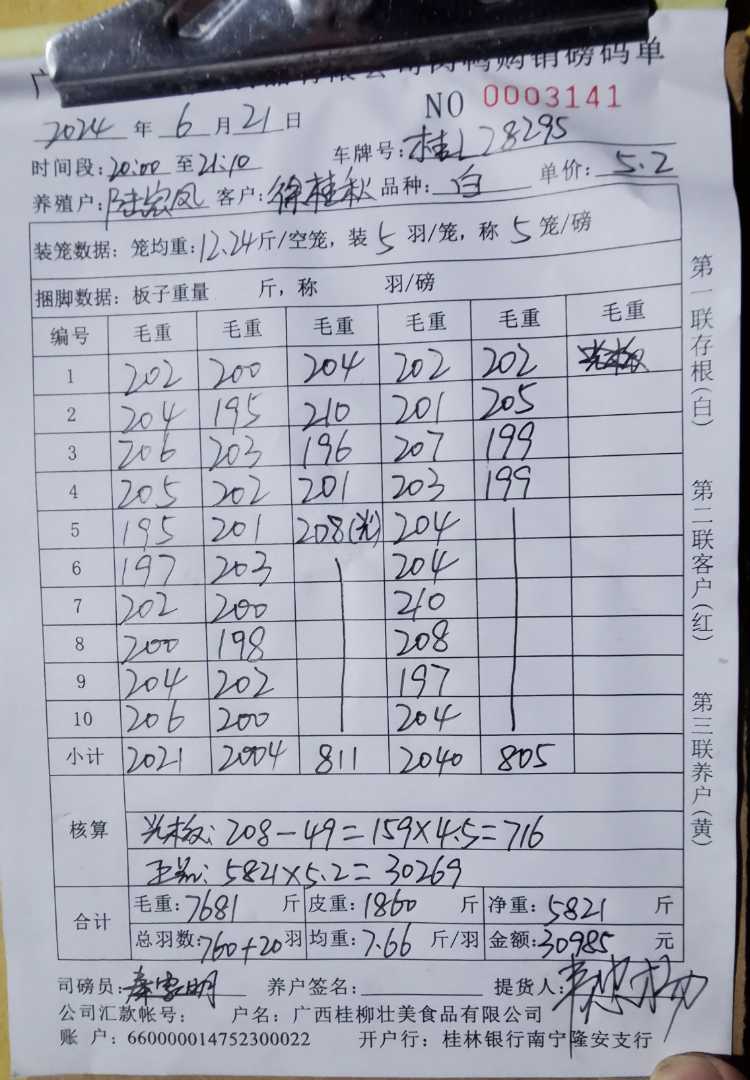 限公司肉鸭购销磅码单
NO 0003141
2024 年 6 月 21 日
时间段: 20:00 至 21:10 车牌号: 桂L28295
养殖户: 陆宗凤 客户: 徐桂秋 品种: 白 单价: 5.2
装笼数据: 笼均重: 12.24 斤/空笼, 装 5 羽/笼, 称 5 笼/磅
捆脚数据: 板子重量 斤, 称 羽/磅
编号 毛重 毛重 毛重 毛重 毛重 毛重
1 202 200 204 202 202
2 204 195 210 201 205
3 206 203 196 207 199
4 205 202 201 203 199
5 195 201 208(光) 204
6 197 203 204
7 202 200 210
8 200 198 208
9 204 202 197
10 206 200 204
小计 2021 2004 811 2040 805
核算
光板: 208-49=159×4.5=716
正品: 5821×5.2=30269
合计
毛重: 7681 斤 皮重: 1860 斤 净重: 5821 斤
总羽数: 760+20 羽 均重: 7.66 斤/羽 金额: 30985 元
司磅员: 养户签名: 提货人:
公司汇款帐号: 户名: 广西桂柳壮美食品有限公司
账 户: 660000014752300022 开户行: 桂林银行南宁隆安支行
第一联存根(白) 第二联客户(红) 第三联养户(黄)